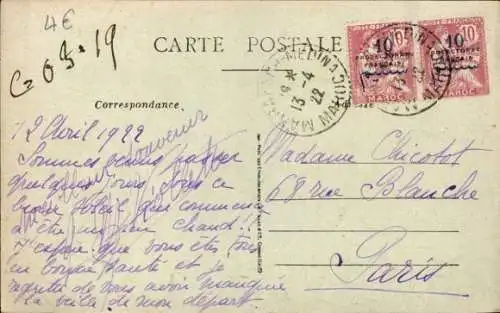 4€
C=03-19
CARTE POSTALE
MARRAKECH-MEDINA
MAROC
13-4
22
10
10
PROTECTORAT
FRANÇAIS
MAROC
10
10
PROTECTORAT
FRANÇAIS
MAROC
Correspondance
12 Avril 1922
Sommes venus passer
quelques jours sous ce
beau soleil qui commence
à être un peu chaud!!
J'espère que vous êtes tous
en bonne santé et je
regrette de vous avoir manqué
la veille de mon départ
souvenir
Madame Chicotot
68 rue Blanche
Paris